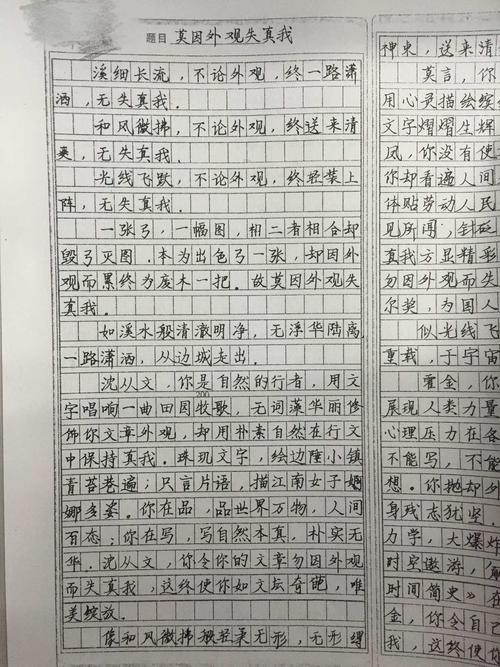 题目 莫因外观失真我
溪细长流，不论外观，终一路潇
洒，无失真我．
和风微拂，不论外观，终送来清
爽，无失真我．
光线飞跃，不论外观，终轻装上
阵，无失真我．
一张弓，一幅图，相二者相合却
毁弓灭图．本为出色弓一张，却因外
观而累终为废木一把．故莫因外观失
真我．
如溪水般清澈明净，无浮华陆离，
一路潇洒，从边城走出．
沈从文，你是自然的行者，用文
200
字唱响一曲田园牧歌，无词藻华丽修
饰你文章外观，却用朴素自然在行文
中保持真我．珠玑文字，绘边陲小镇
青苔巷遍；只言片语，描江南女子婀
娜多姿．你在品，品世界万物，人间
百态；你在写，写自然本真，朴实无
华．沈从文，你令你的文章勿因外观
而失真我，这终使你如文坛奇葩，唯
美绽放．
像和风微拂般轻柔无形，无形得
神束，送来清
莫言，你
用心灵描绘缤
文字熠熠生辉
风，你没有使
你却看遍人间
体贴劳动人民
见所闻，针砭
真我方显精彩
勿因外观而失
尔奖，为国人
似光线飞
重载，于宇宙
霍金，你
展现人类力量
心理压力在各
不能写，不能
想．你抛却外
身残志犹坚．
力学，大爆炸
时空遨游，解
时间简史》在
金，你令自己
我，这终使你